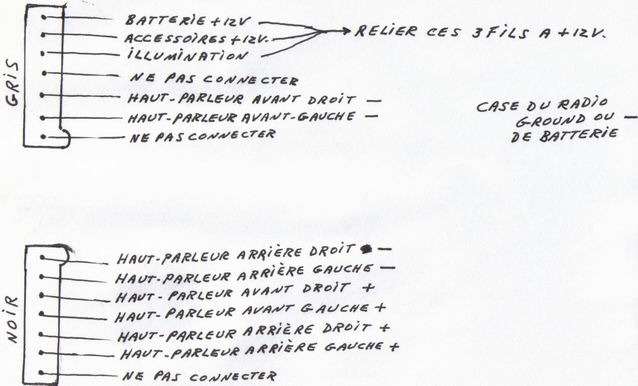 BATTERIE +12V
ACCESSOIRES +12V.
ILLUMINATION
RELIER CES 3 FILS A +12V.
NE PAS CONNECTER
HAUT-PARLEUR AVANT DROIT —
HAUT-PARLEUR AVANT-GAUCHE —
NE PAS CONNECTER
GRIS
CASE DU RADIO
GROUND OU —
DE BATTERIE
HAUT-PARLEUR ARRIÈRE DROIT —
HAUT-PARLEUR ARRIÈRE GAUCHE —
HAUT-PARLEUR AVANT DROIT +
HAUT-PARLEUR AVANT GAUCHE +
HAUT-PARLEUR ARRIÈRE DROIT +
HAUT-PARLEUR ARRIÈRE GAUCHE +
NE PAS CONNECTER
NOIR